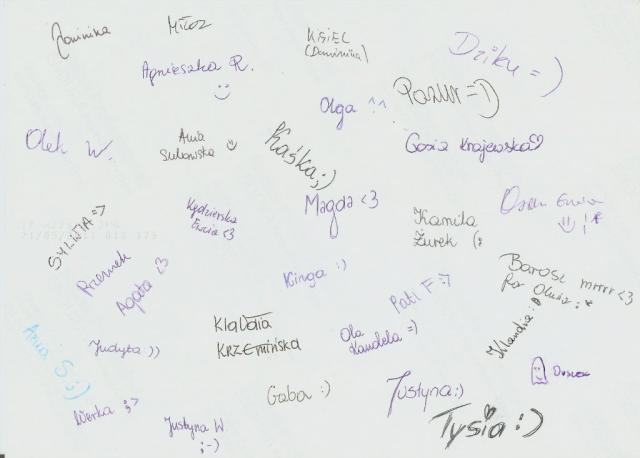 Dominika
MIŁOSZ
KGIEL
(Dominika)
Dziku =)
Agnieszka R.
Pazur =D
Olga ^^
Olek W.
Ania
Sułowska
Kaśka ;)
Gosia Krajewska
Magda <3
Kamila
Żurek (:
SYLWIA =>
Kędzierska
Ewcia <3
Przemek
Agata <3
Kinga :)
Pati F :7
Barosz mrrrr <3
for :*
Klaudia :D
KlaUDIA
KRZEMIŃSKA
Ola
Kandela =)
Judyta :))
Ania S ;)
Werka ;>
Justyna W
;-)
Gaba :)
Justyna :)
Tysia :)